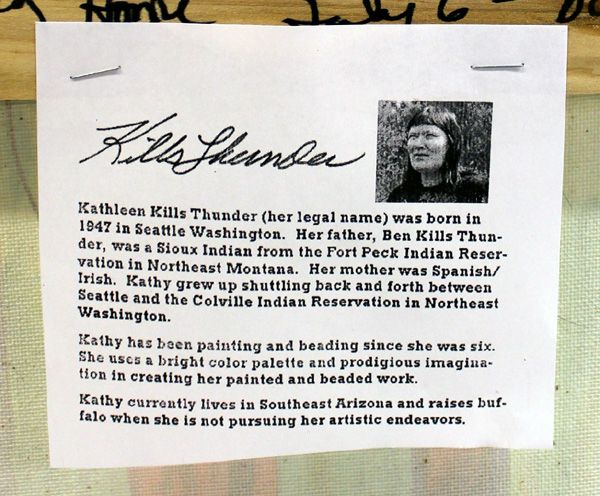 Home July 6 -
Kills Thunder
Kathleen Kills Thunder (her legal name) was born in
1947 in Seattle Washington. Her father, Ben Kills Thun-
der, was a Sioux Indian from the Fort Peck Indian Reser-
vation in Northeast Montana. Her mother was Spanish/
Irish. Kathy grew up shuttling back and forth between
Seattle and the Colville Indian Reservation in Northeast
Washington.
Kathy has been painting and beading since she was six.
She uses a bright color palette and prodigious imagina-
tion in creating her painted and beaded work.
Kathy currently lives in Southeast Arizona and raises buf-
falo when she is not pursuing her artistic endeavors.